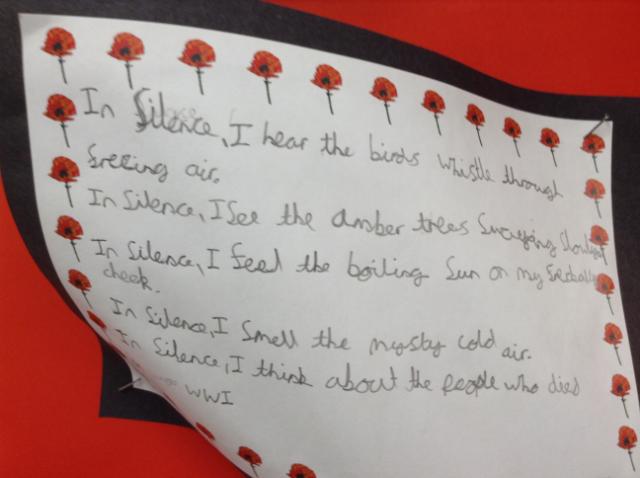 In Silence, I hear the birds whistle through
freezing air.
In Silence, I See the amber trees Swaying Slowly
In Silence, I feel the boiling Sun on my
cheek.
In Silence, I Smell the mysty cold air.
In Silence, I think about the people who died
WWI